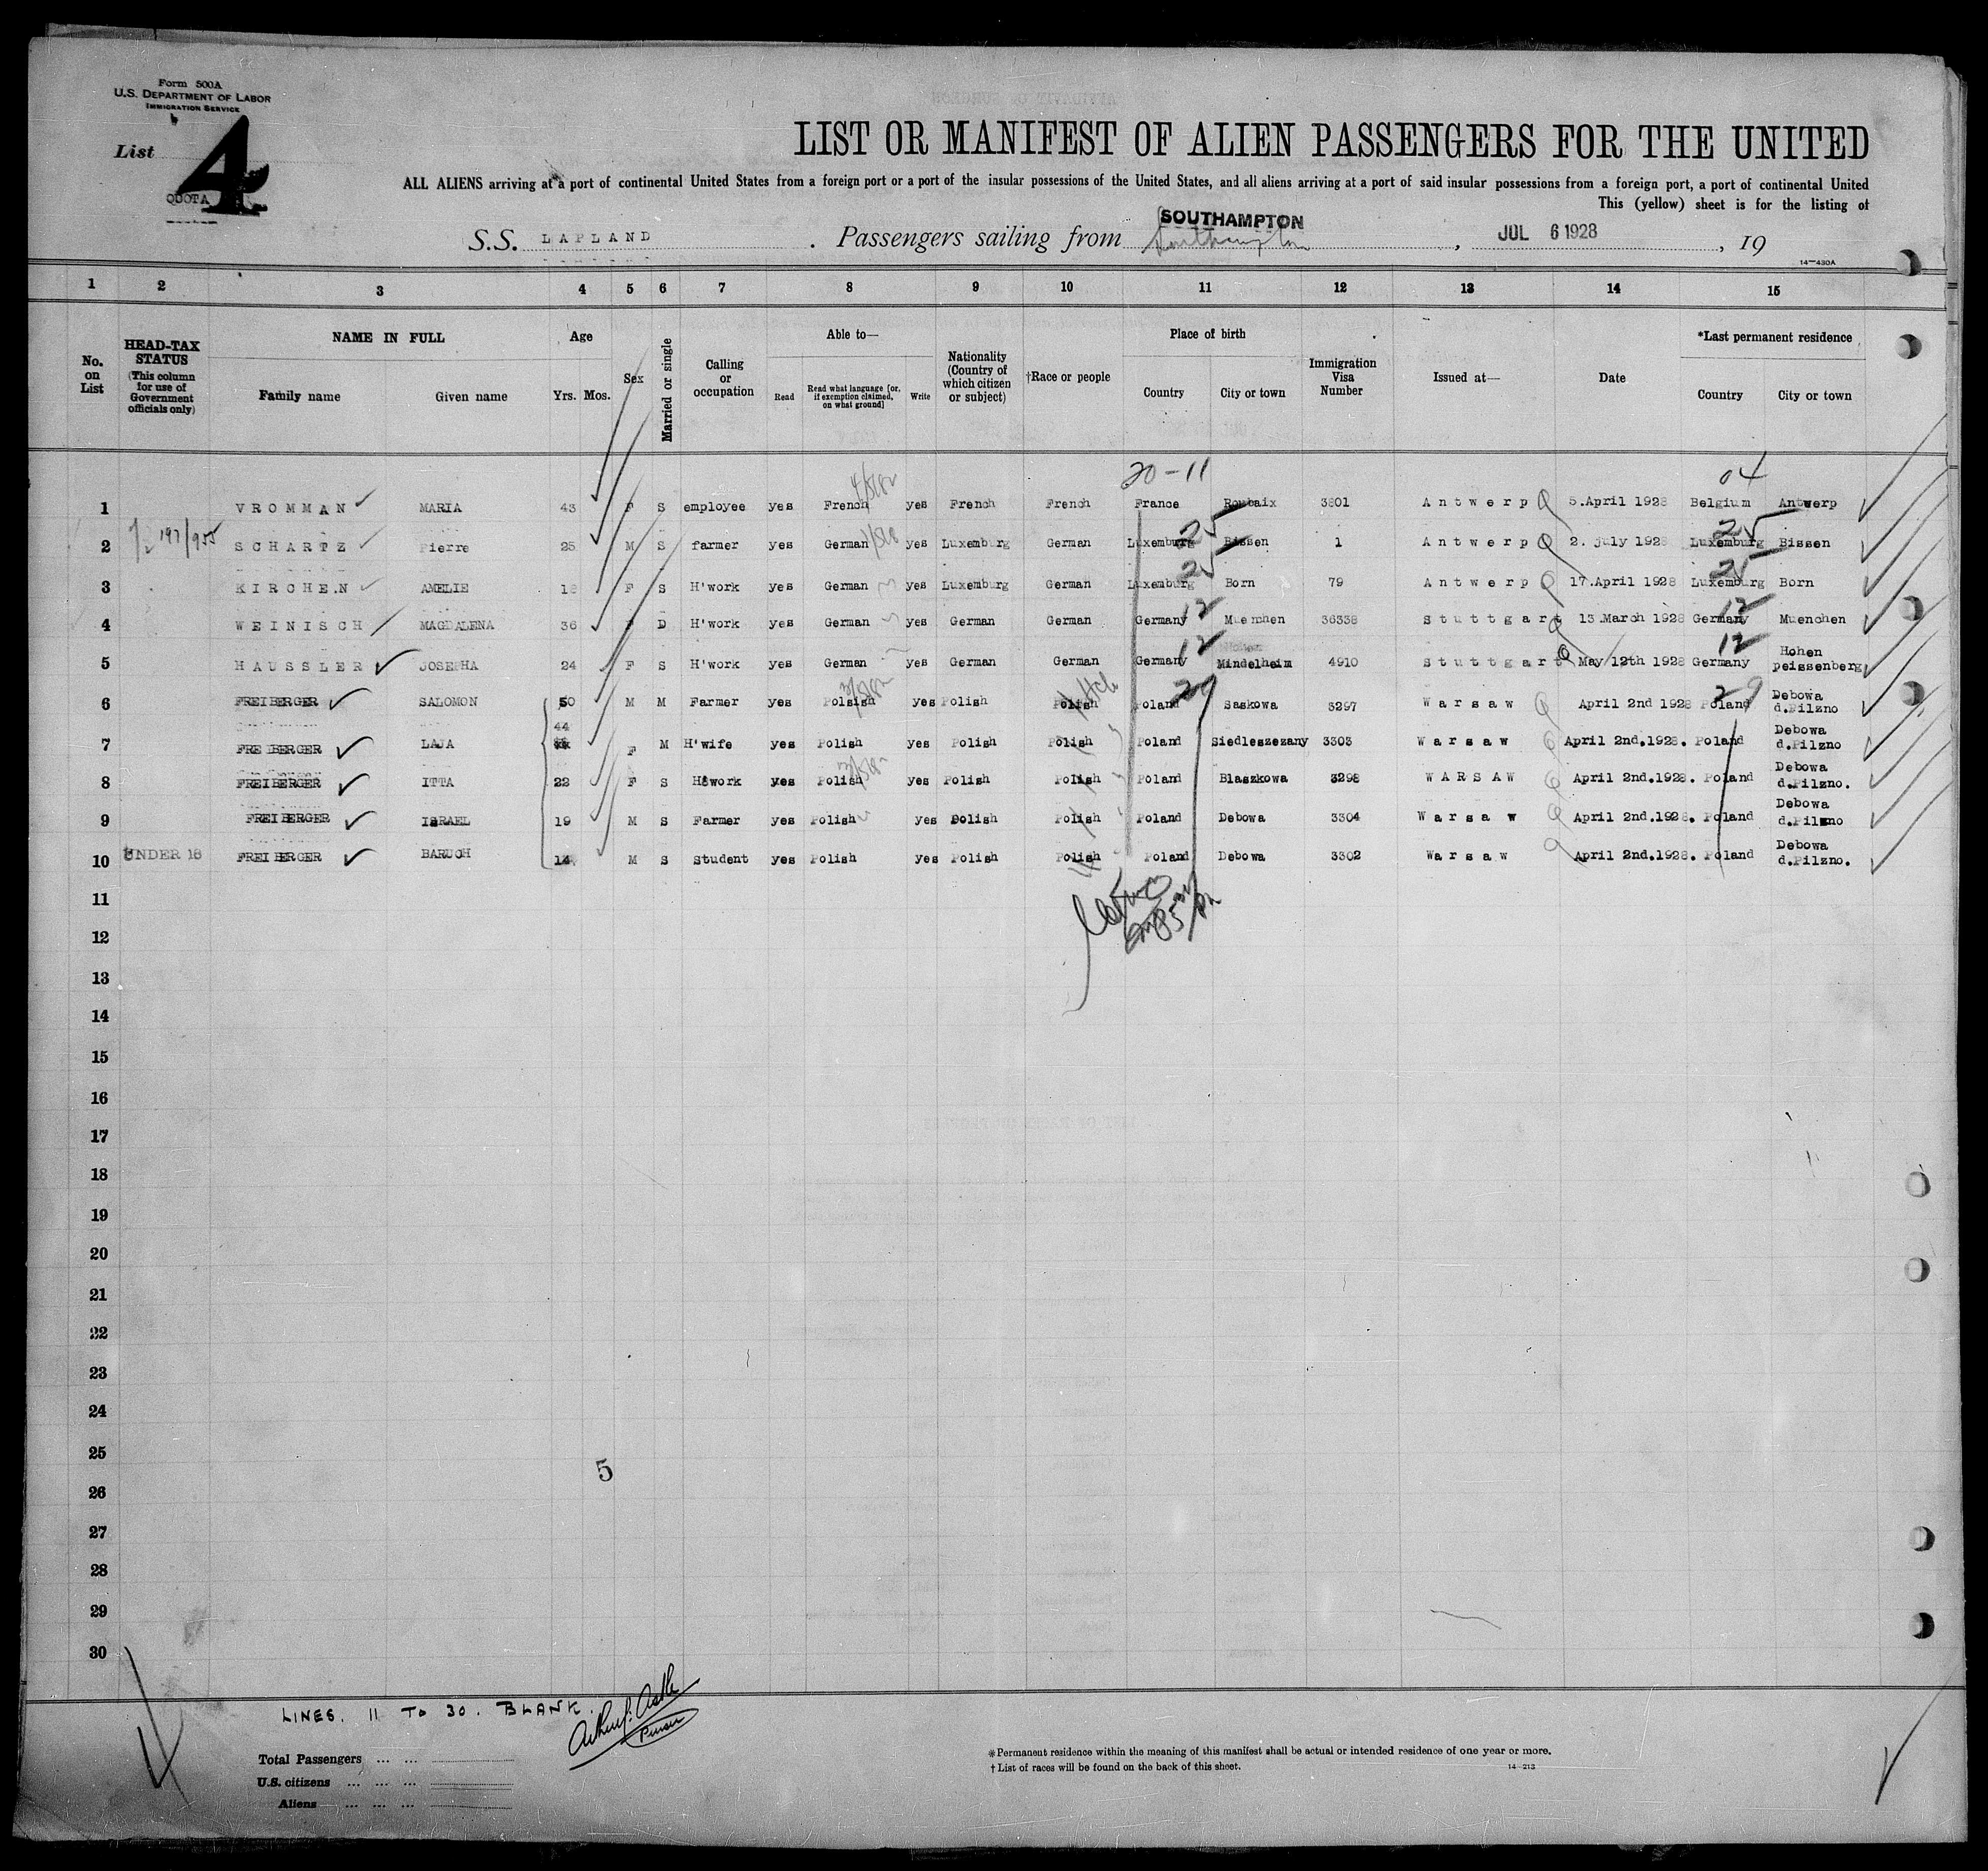 Form 500A
U.S. DEPARTMENT OF LABOR
IMMIGRATION SERVICE
List 4
QUOTA
LIST OR MANIFEST OF ALIEN PASSENGERS FOR THE UNITED
ALL ALIENS arriving at a port of continental United States from a foreign port or a port of the insular possessions of the United States, and all aliens arriving at a port of said insular possessions from a foreign port, a port of continental United
This (yellow) sheet is for the listing of
S.S. LAPLAND . Passengers sailing from SOUTHAMPTON Southampton , JUL 6 1928 , 19
14—430A
1 2 3 4 5 6 7 8 9 10 11 12 13 14 15
No. on List
HEAD-TAX STATUS (This column for use of Government officials only)
NAME IN FULL
Family name Given name
Age
Yrs. Mos.
Sex
Married or single
Calling or occupation
Able to—
Read Read what language [or, if exemption claimed, on what ground] Write
Nationality (Country of which citizen or subject)
†Race or people
Place of birth
Country City or town
Immigration Visa Number
Issued at—
Date
*Last permanent residence
Country City or town
20-11 04
1 VROMMAN MARIA 43 F S employee yes French yes French French France Roubaix 3801 Antwerp 5.April 1928 Belgium Antwerp
25 25
2 197/955 SCHARTZ Pierre 25 M S farmer yes German yes Luxemburg German Luxemburg Bissen 1 Antwerp 2. july 1928 Luxemburg Bissen
25 25
3 KIRCHEN AMELIE 18 F S H'work yes German yes Luxemburg German Luxemburg Born 79 Antwerp 17.April 1928 Luxemburg Born
12 12
4 WEINISCH MAGDALENA 36 F D H'work yes German yes German German Germany Muenchen 36338 Stuttgart 13.March 1928 Germany Muenchen
12 12
5 HAUSSLER JOSEPHA 24 F S H'work yes German yes German German Germany Mindelheim 4910 Stuttgart May 12th 1928 Germany Hohen peissenberg
29 29
6 FREIBERGER SALOMON 50 M M Farmer yes Polsish yes Polish Polish Poland Saskowa 3297 Warsaw April 2nd 1928 Poland Debowa d.Pilzno
44
7 FREIBERGER LAJA F M H'wife yes Polish yes Polish Polish Poland Siedleszezany 3303 Warsaw April 2nd.1928. Poland Debowa d.Pilzno
8 FREIBERGER ITTA 22 F S H'work yes Polish yes Polish Polish Poland Blaszkowa 3298 WARSAW April 2nd.1928. Poland Debowa d.Pilzno.
9 FREIBERGER ISRAEL 19 M S Farmer yes Polish yes Polish Polish Poland Debowa 3304 Warsaw April 2nd.1928. Poland Debowa d.Pilzno
10 UNDER 16 FREIBERGER BARUCH 14 M S Student yes Polish yes Polish Polish Poland Debowa 3302 Warsaw April 2nd.1928. Poland Debowa d.Pilzno.
11
12
13
14
15
16
17
18
19
20
21
22
23
24
25
5
26
27
28
29
30
LINES. 11 TO 30. BLANK.
Purser
Total Passengers ... ...
U.S. citizens ... ... ...
Aliens ... ... ...
*Permanent residence within the meaning of this manifest shall be actual or intended residence of one year or more.
†List of races will be found on the back of this sheet.
14—213